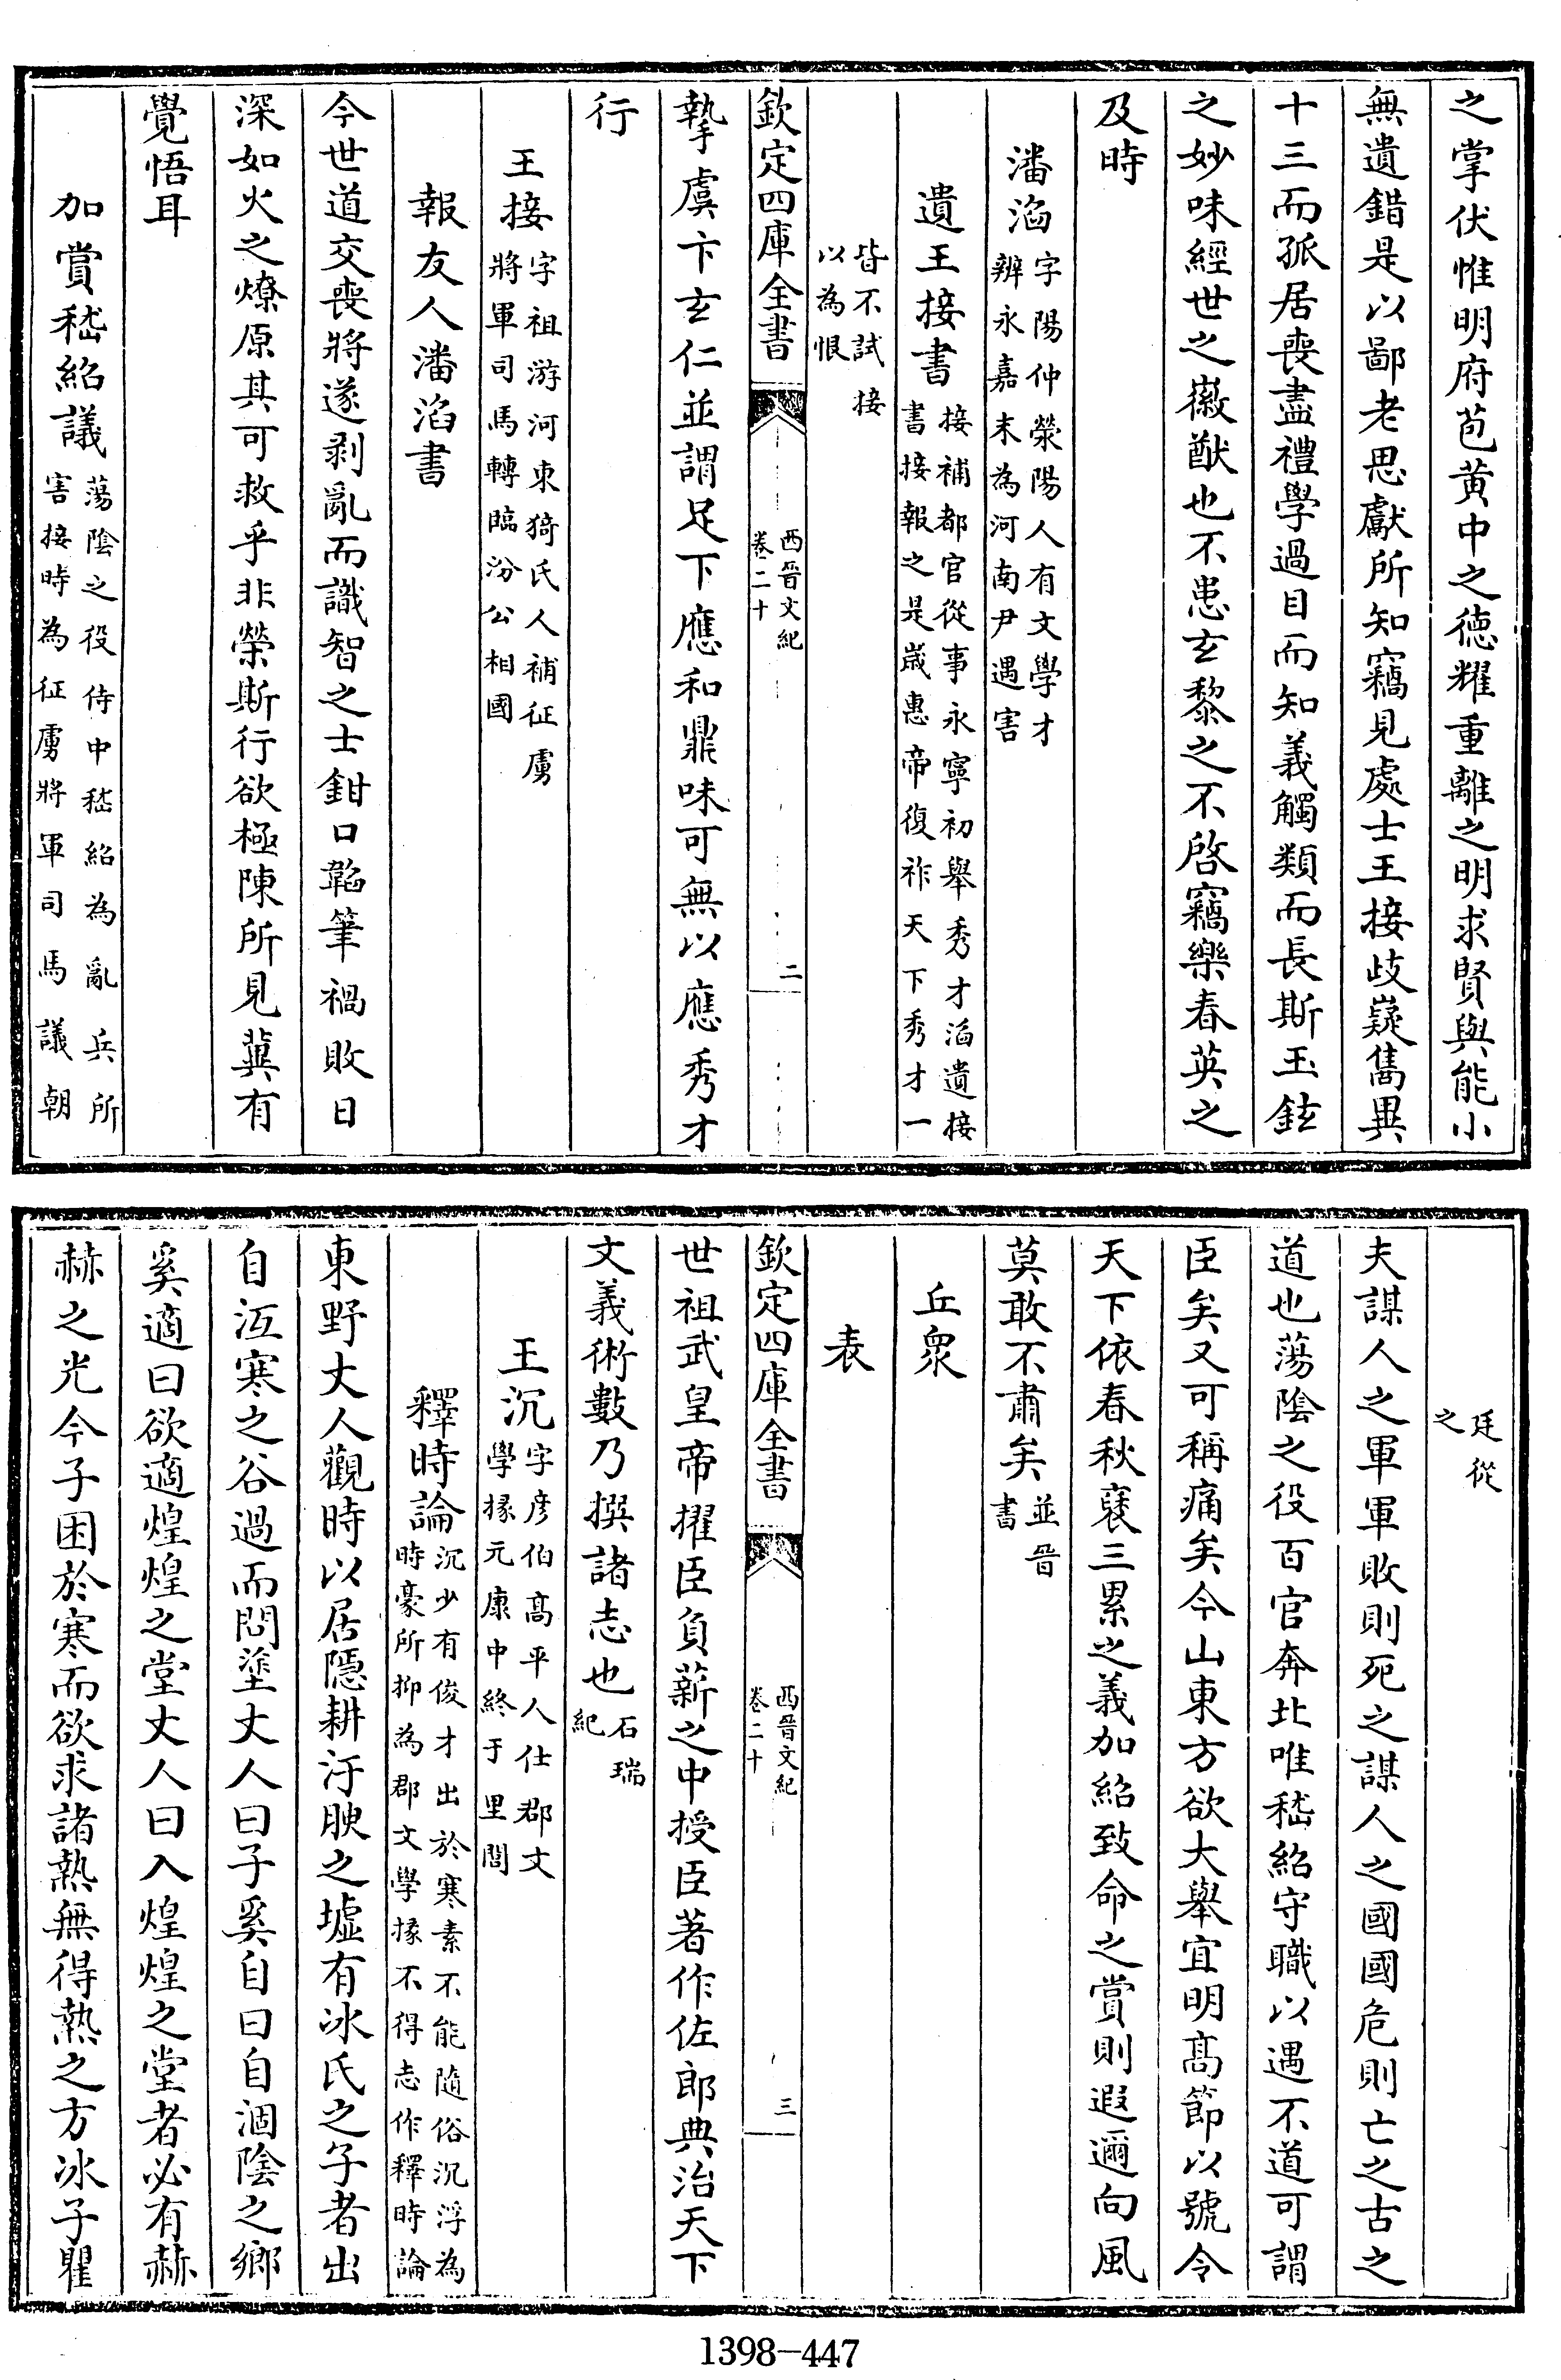 之掌伏惟明府苞黄中之徳耀重離之明求賢與能小
無遺錯是以鄙老思獻所知竊見處士王接歧嶷雋異
十三而孤居喪盡禮學過目而知義觸類而長斯玉鉉
之妙味經世之徽猷也不患玄黎之不啓竊樂春英之
及時
潘滔
字陽仲滎陽人有文學才
辨永嘉末為河南尹遇害
遺王接書
接補都官從事永寧初舉秀才滔遺接
書接報之是嵗惠帝復祚天下秀才一
皆不試接
以為恨
欽定四庫全書
西晉文紀
卷二十
二
摯虞卞玄仁並謂足下應和鼎味可無以應秀才
行
王接
字祖游河東猗氏人補征虜
將軍司馬轉臨汾公相國
報友人潘滔書
今世道交喪將遂剥亂而識智之士鉗口韜筆禍敗日
深如火之燎原其可救乎非榮斯行欲極陳所見冀有
覺悟耳
加賞嵇紹議
蕩陰之役侍中嵇紹為亂兵所
害接時為征虜將軍司馬議朝
廷從
之
夫謀人之軍軍敗則死之謀人之國國危則亡之古之
道也蕩陰之役百官奔北唯嵇紹守職以遇不道可謂
臣矣又可稱痛矣今山東方欲大舉宜明髙節以號令
天下依春秋襃三累之義加紹致命之賞則遐邇向風
莫敢不肅矣
並晉
書
丘衆
表
欽定四庫全書
西晉文紀
卷二十
三
世祖武皇帝擢臣負薪之中授臣著作佐郎典治天下
文義術數乃撰諸志也
石瑞
紀
王沉
字彦伯髙平人仕郡文
學掾元康中終于里閭
釋時論
沉少有俊才出於寒素不能隨俗沉浮為
時豪所抑為郡文學掾不得志作釋時論
東野丈人觀時以居隱耕汙腴之墟有冰氏之子者出
自沍寒之谷過而問塗丈人曰子奚自曰自涸陰之鄉
奚適曰欲適煌煌之堂丈人曰入煌煌之堂者必有赫
赫之光今子困於寒而欲求諸熱無得熱之方冰子瞿
1398-447